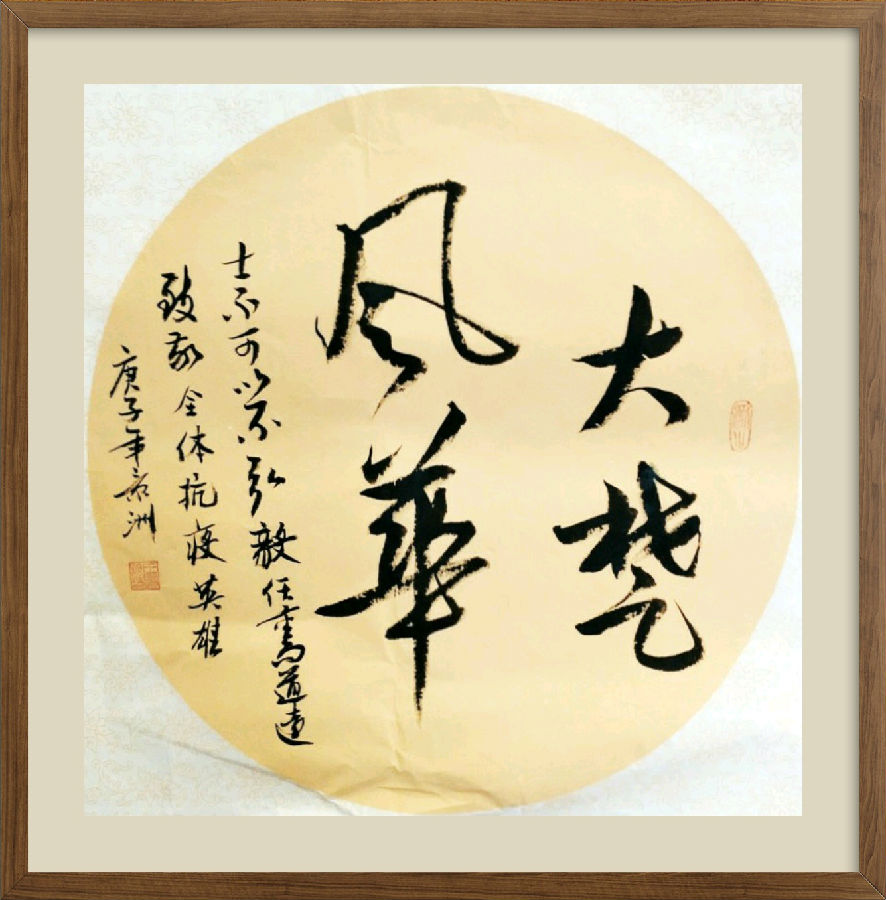 大楚
風華
士不可以不弘毅任重而道遠
致敬全体抗疫英雄
庚子年
洲